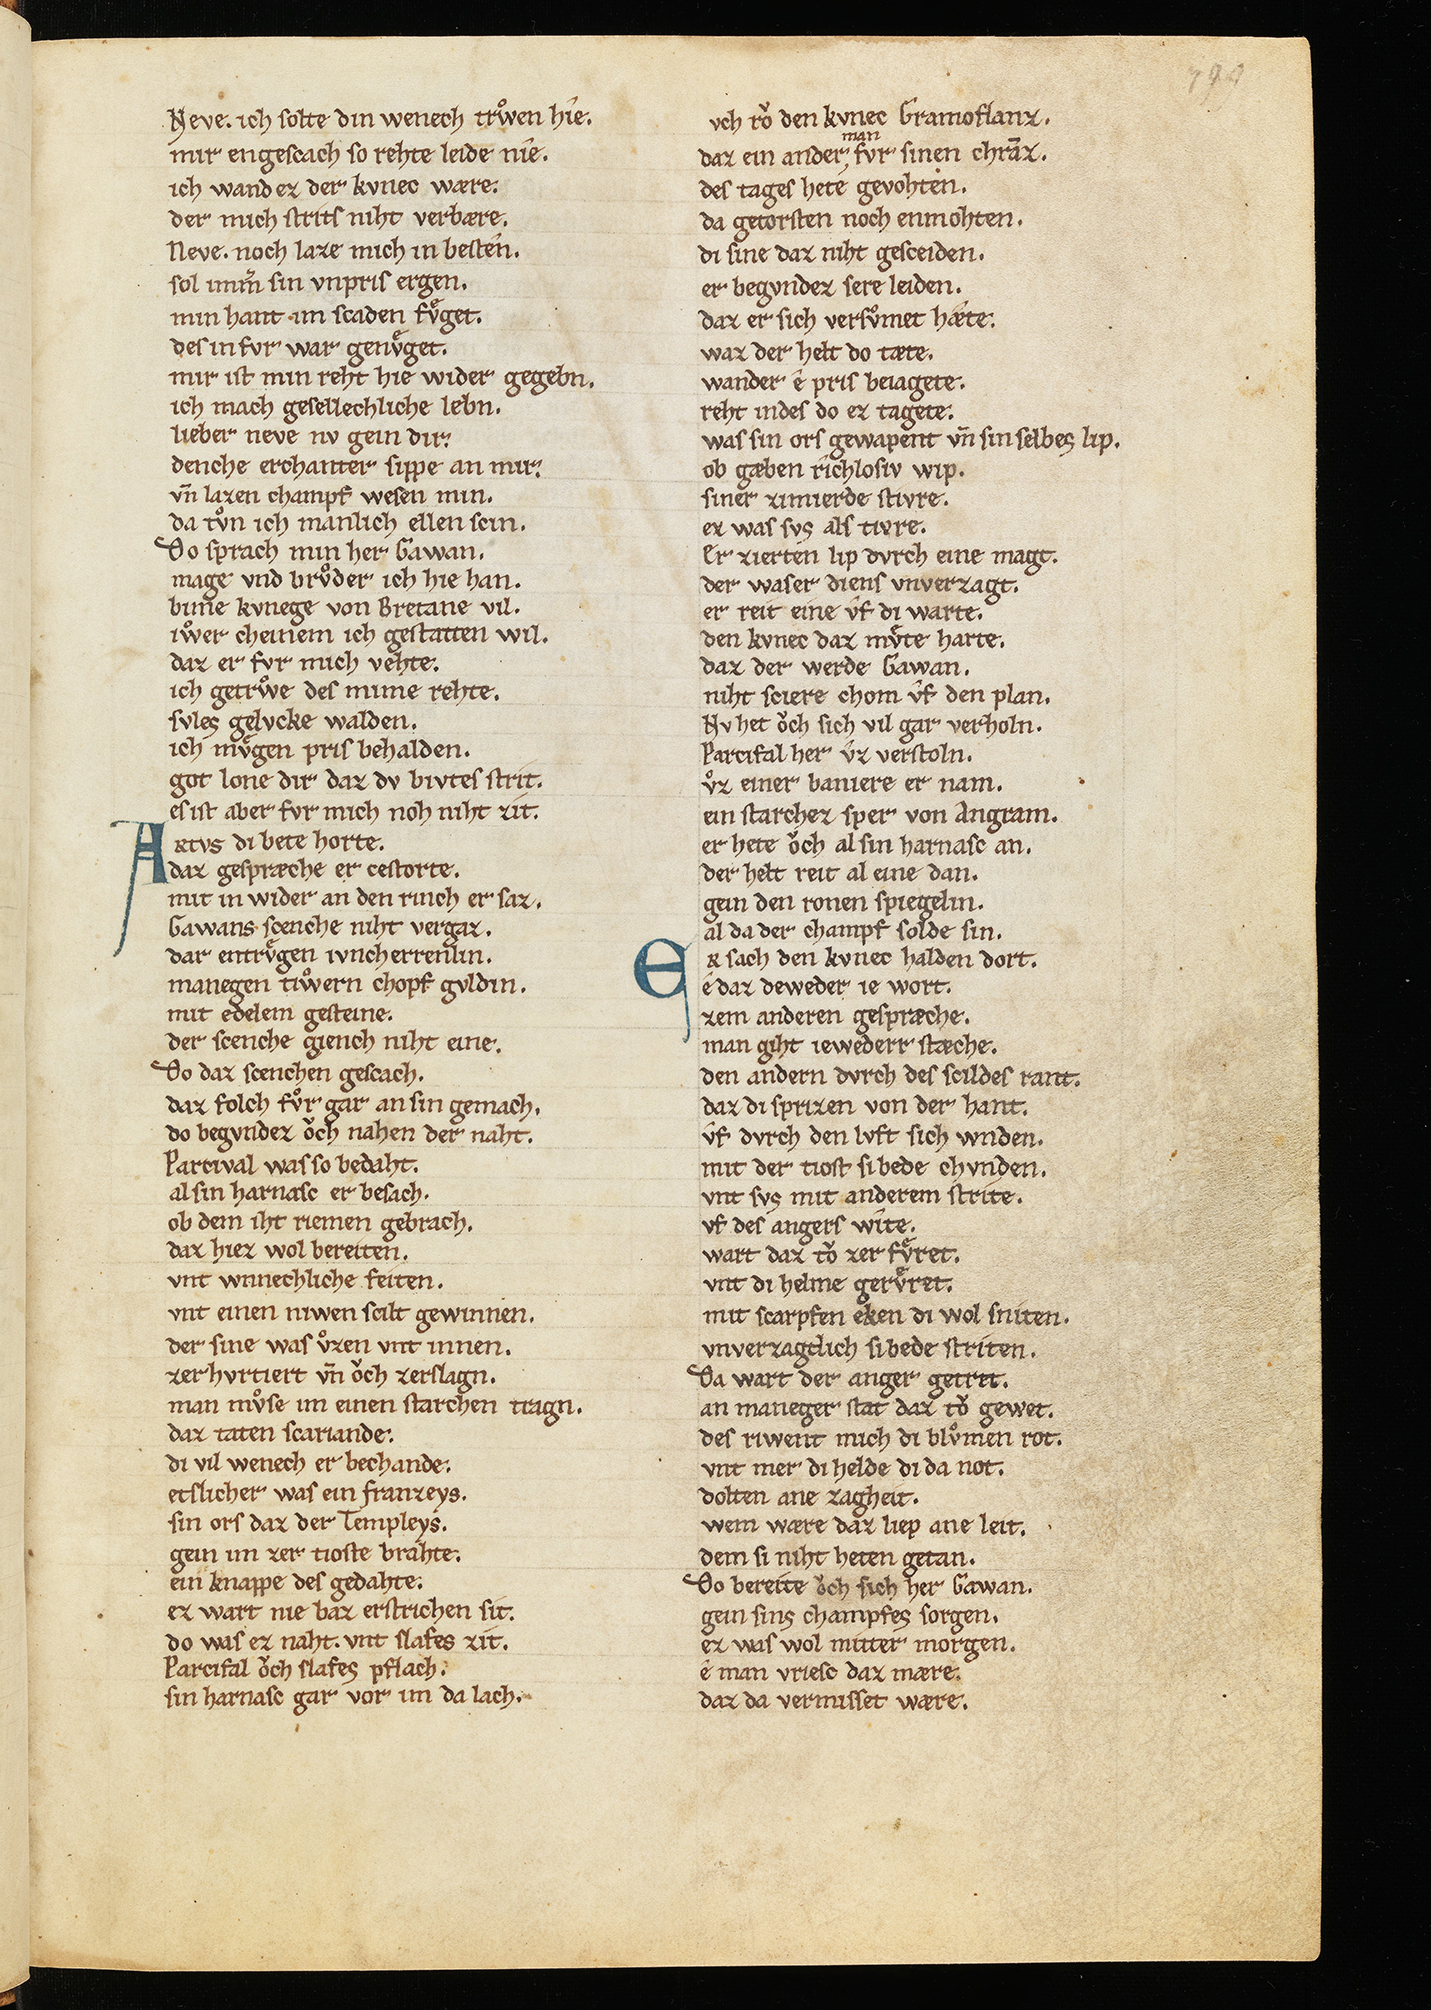 Neve. ich solte din wenech trͦwen hie.
mir engescach so rehte leide nîe.
ich wand ez der kvnec wære.
der mich strits niht verbære.
Neve. noch laze mich in besten.
sol imm̄ sin vnpris ergen.
min hant im scaden fvͤget.
des in fvr war genvͤget.
mir ist min reht hie wider gegebn.
ich mach gesellechliche lebn.
lieber neve nv gein dir.
denche erchanter sippe an mir.
vn̄ lazen champf wesen min.
da tvͦn ich manlich ellen scin.
Do sprach min her Gawan.
mage vnd brvͦder ich hie han.
bime kvnege von Bretane vil.
iwͦer cheinem ich gestatten wil.
daz er fvr mich vehte.
ich getrwͦe des mime rehte.
svles gelvcke walden.
ich mvͤgen pris behalden.
got lone dir daz dv bivtes strit.
es ist aber fvr mich noh niht zit.
Artvs di bete horte.
daz gespræche er cestorte.
mit in wider an den rinch er saz.
Gawans scenche niht vergaz.
dar entrvͤgen ivncherrenlin.
manegen tiwͦern chopf gvldin.
mit edelem gesteine.
der scenche giench niht eine.
Do daz scenchen gescach.
daz folch fvͦr gar an sin gemach.
do begvndez oͮch nahen der naht.
Parcival was so bedaht.
al sin harnasc er besach.
ob dem iht riemen gebrach.
daz hiez wol bereiten.
vnt wnnechliche feiten.
vnt einen niwen scilt gewinnen.
der sine was vͦzen vnt innen.
zerhvrtiert vn̄ oͮch zerslagn.
man mvͦse im einen starchen tragn.
daz taten scariande.
di vil wenech er bechande.
etslicher was ein franzeys.
sin ors daz der Templeys.
gein im zer tioste brahte.
ein knappe des gedahte.
ez wart nie baz erstrichen sit.
do was ez naht. vnt slafes zit.
Parcifal oͮch slafes pflach.
sin harnasc gar vor im da lach.
vch roͮ den kvnec Gramoflanz.
daz ein ander man fvr sinen chranz.
des tages hete gevohten.
da getorsten noch enmohten.
di sine daz niht gesceiden.
er begvndez sere leiden.
daz er sich versvͦmet hæte.
waz der helt do tæte.
wander ê pris beiagete.
reht indes do ez tagete.
was sin ors gewapent vn̄ sin selbes lip.
ob gæben richlosiv wip.
siner zimierde stivre.
ez was svs als tivre.
Er zierten lip dvrch eine magt.
der waser diens vnverzagt.
er reit eine vf di warte.
den kvnec daz mvͤte harte.
daz der werde Gawan.
niht sciere chom vf den plan.
Nv het oͮch sich vil gar verholn.
Parcifal her vz verstoln.
vͦz einer baniere er nam.
ein starchez sper von Angram.
er hete oͮch al sin harnasc an.
der helt reit al eine dan.
gein den ronen spiegelin.
al da der champf solde sin.
Er sach den kvnec halden dort.
ê daz deweder ie wort.
zem anderen gespræche.
man giht iewederr stæche.
den andern dvrch des scildes rant.
daz di sprizen von der hant.
vf dvrch den lvft sich wnden.
mit der tiost si bede chvnden.
vnt svs mit anderem strite.
vf des angers wite.
wart daz toͮ zerfvͤret.
vnt di helme gervͤret.
mit scarpfen eken di wol sniten.
vnverzagtlich si bede striten.
Da wart der anger getrtt.
an maneger stat daz toͮ gewet.
des riwent mich di blvͦmen rot.
vnt mer di helde di da not.
dolten ane zagheit.
wem wære daz liep ane leit.
dem si niht heten getan.
Do bereite oͮch sich her Gawan.
gein sins champfes sorgen.
ez was wol mitter morgen.
ê man vriesc daz mære.
daz da vermisset wære.